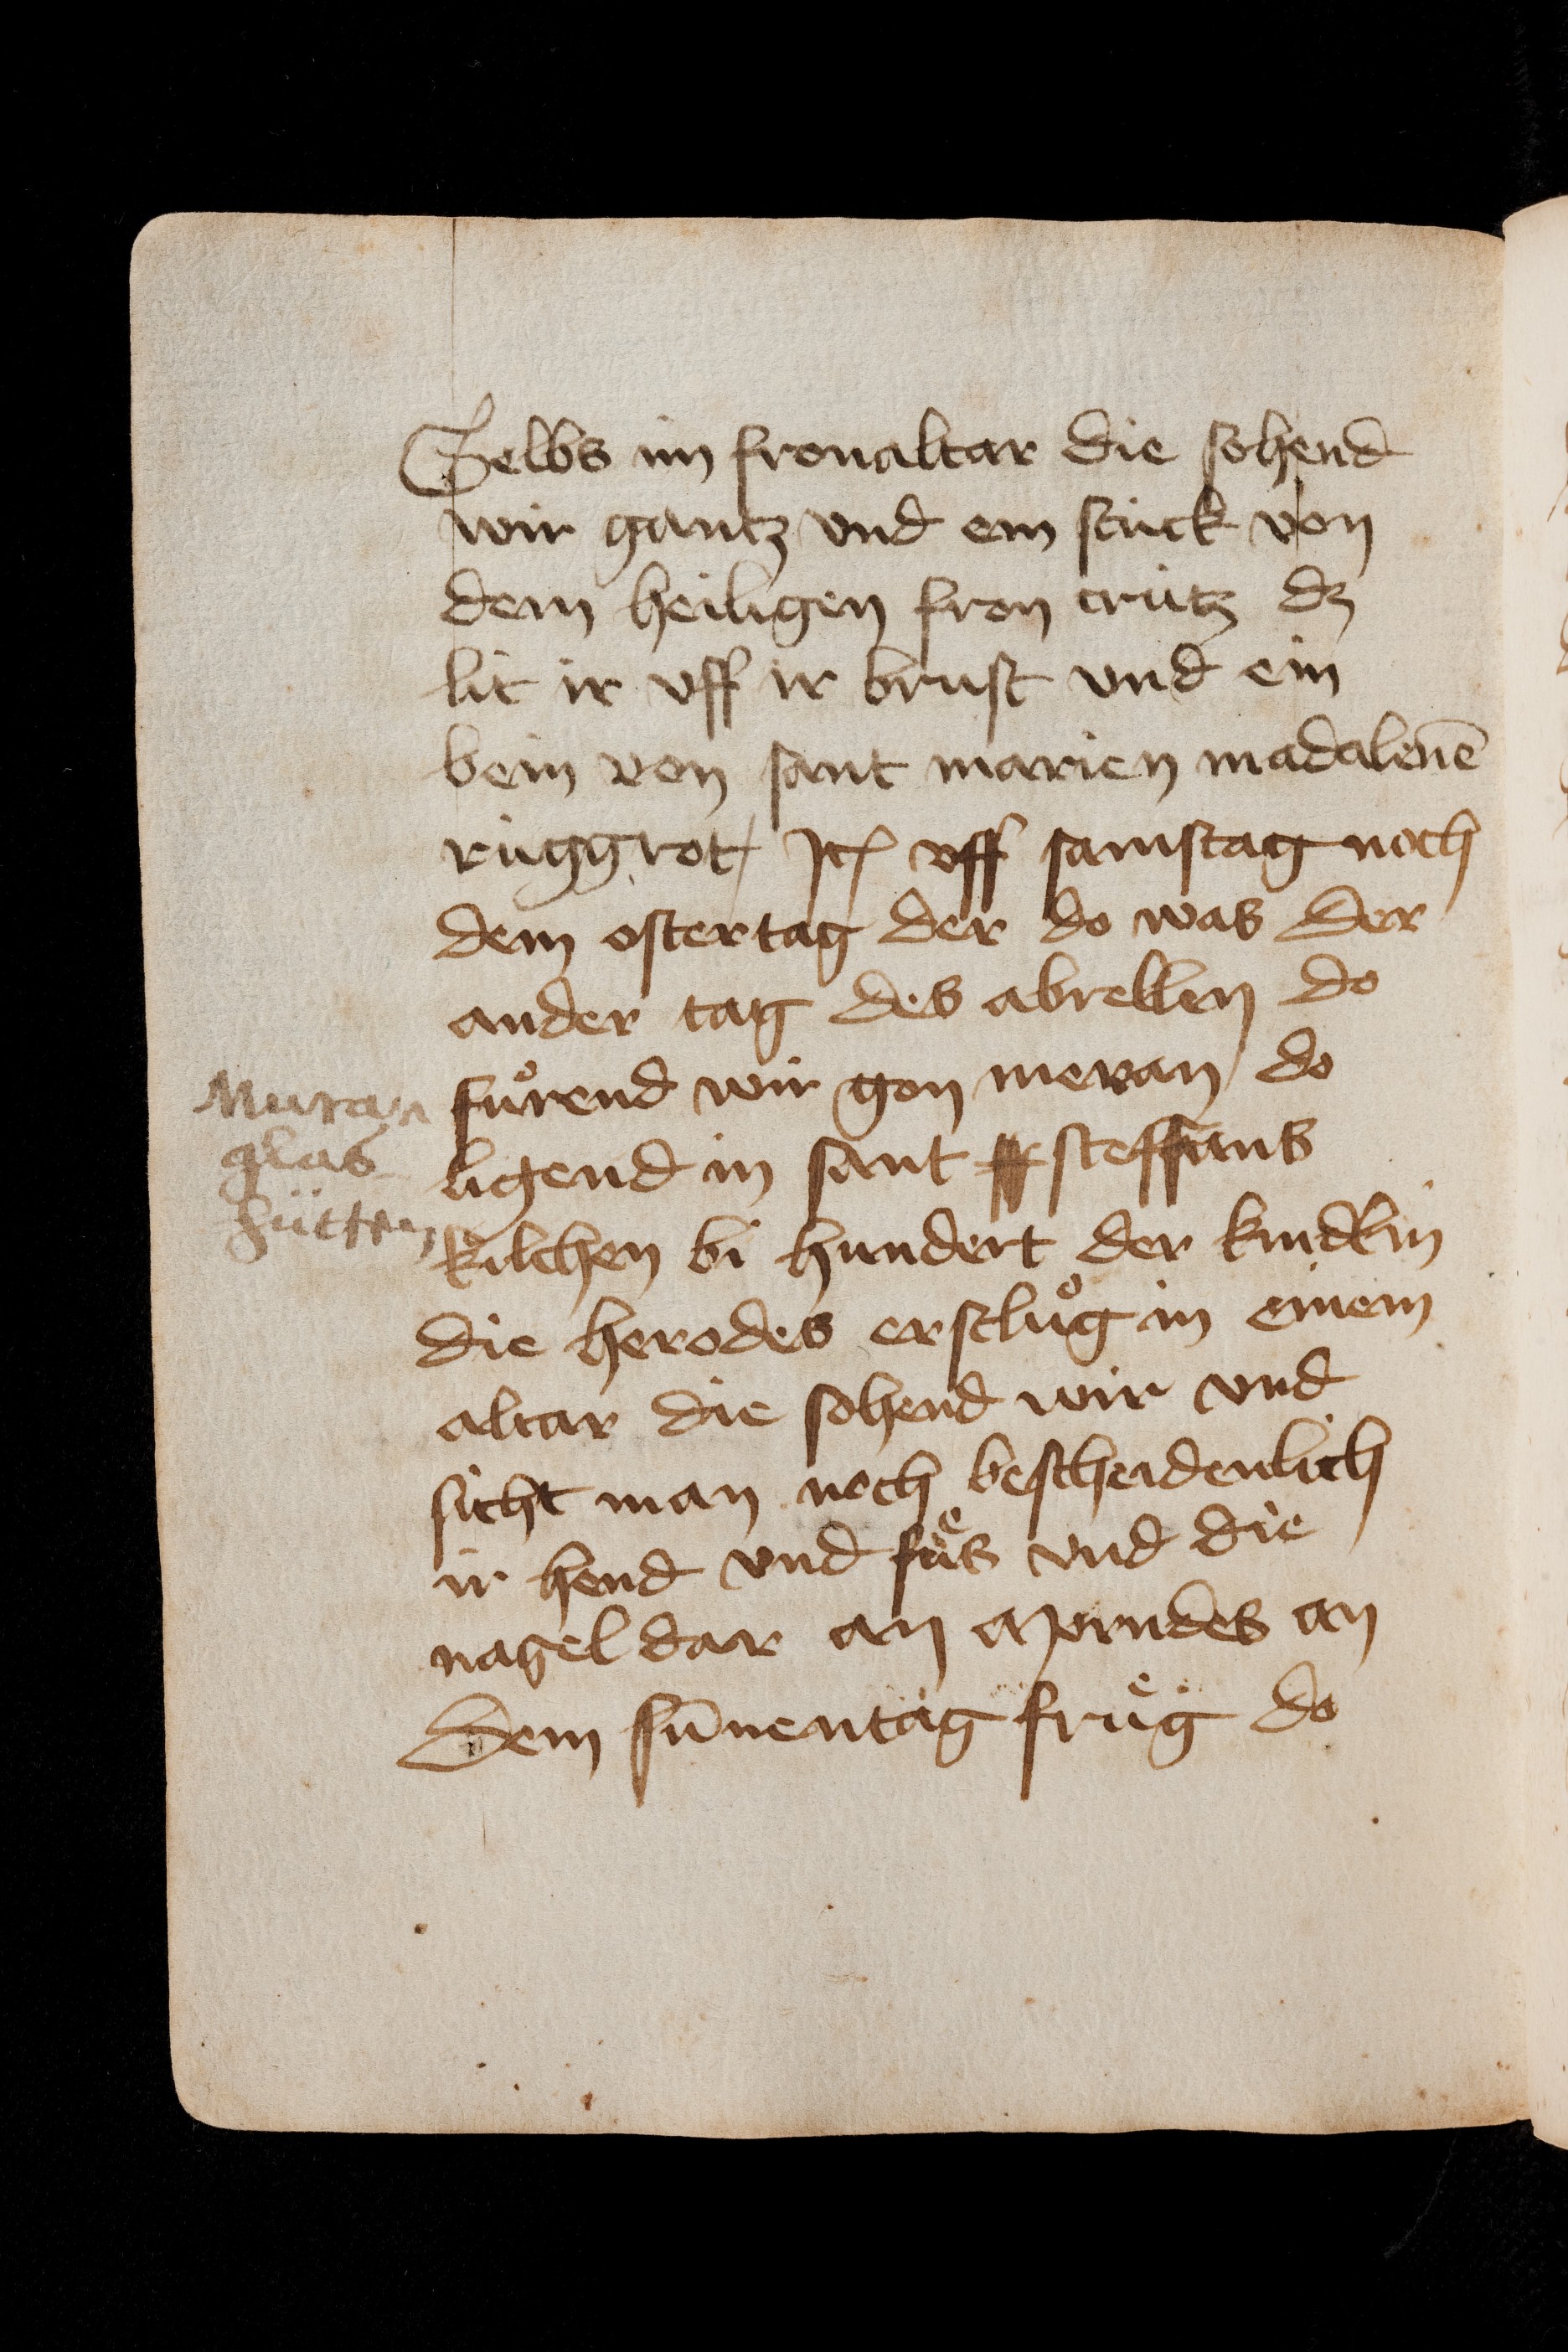 Selbs im fronaltar die sohend
wir gantz vnd ein stuck von
dem heiligen fron crütz dz
lit ir vff ir brust vnd ein
bein von sant marien madalenē
ruggrot / Itē vff samstag noch
dem ostertag der do was der
ander tag des abrellen do
fuͦrend wir gon meran / do
ligend in sant steffans
kilchen bi hundert der kindlin
die herodes erscluͦg in einem
altar die sohend wir vnd
sicht man noch bescheidenlich
ir hend vnd fuͤs vnd die
nagel dar an Morndes an
dem sūnentag fruͤg do
Muran
glas
hütten